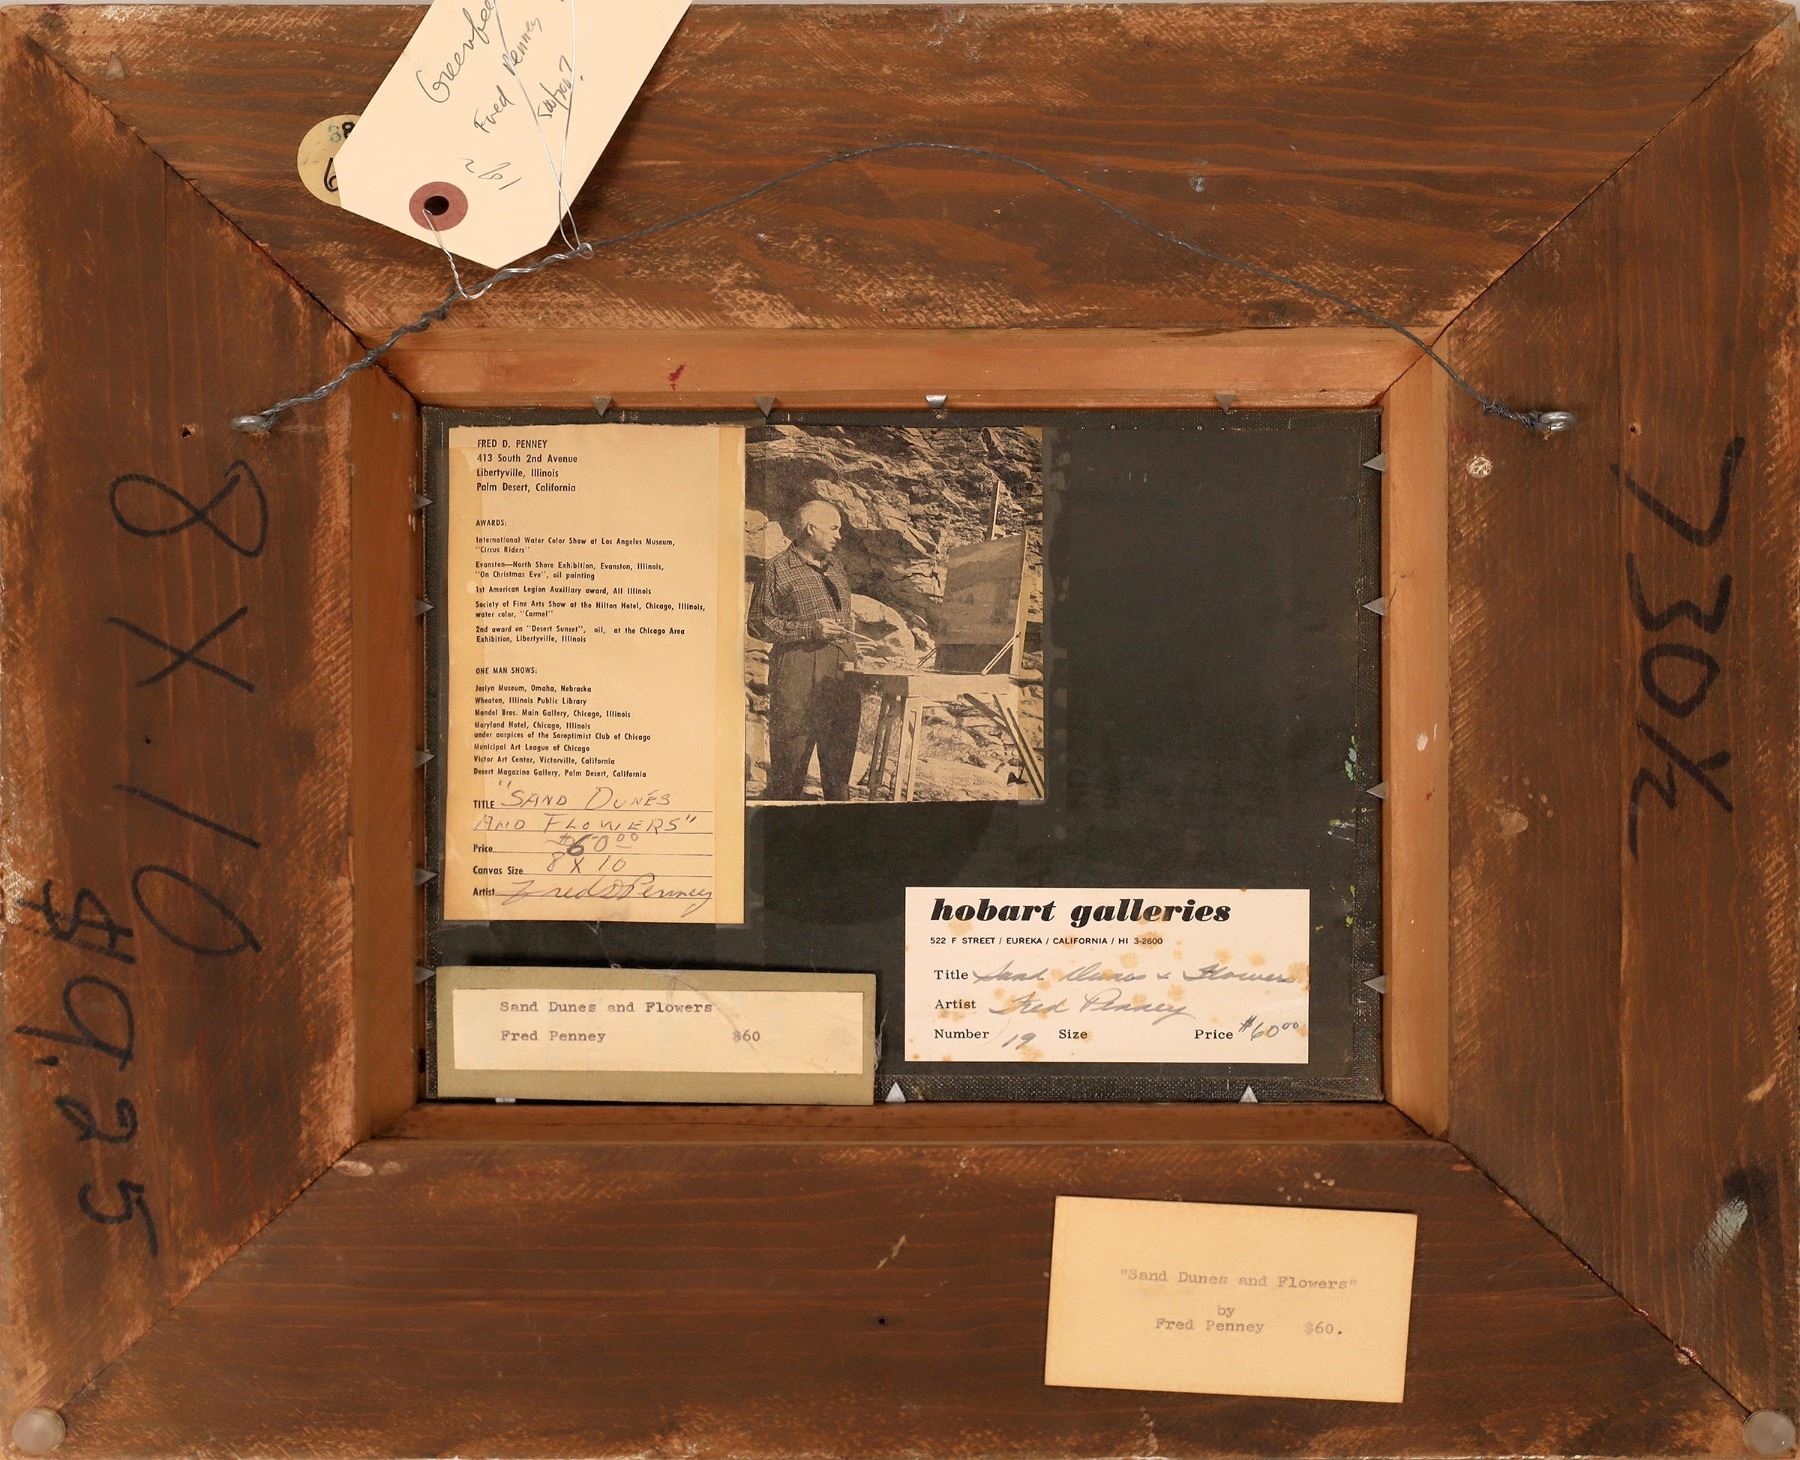 Fred Penney
88
6
8 X 10
$9.25
730½
FRED D. PENNEY
413 South 2nd Avenue
Libertyville, Illinois
Palm Desert, California
AWARDS:
International Water Color Show at Los Angeles Museum,
"Circus Riders"
Evanston—North Shore Exhibition, Evanston, Illinois,
"On Christmas Eve", oil painting
1st American Legion Auxiliary award, All Illinois
Society of Fine Arts Show at the Hilton Hotel, Chicago, Illinois,
water color, "Carmel"
2nd award on "Desert Sunset", oil, at the Chicago Area
Exhibition, Libertyville, Illinois
ONE MAN SHOWS:
Joslyn Museum, Omaha, Nebraska
Wheaton, Illinois Public Library
Mandel Bros. Main Gallery, Chicago, Illinois
Maryland Hotel, Chicago, Illinois
under auspices of the Soroptimist Club of Chicago
Municipal Art League of Chicago
Victor Art Center, Victorville, California
Desert Magazine Gallery, Palm Desert, California
TITLE "SAND DUNES
AND FLOWERS"
Price $60.00
Canvas Size 8 X 10
Artist Fred D Penney
hobart galleries
522 F STREET / EUREKA / CALIFORNIA / HI 3-2600
Title Sand Dunes & Flowers
Artist Fred Penney
Number 19 Size Price $60.00
Sand Dunes and Flowers
Fred Penney $60
"Sand Dunes and Flowers"
by
Fred Penney $60.